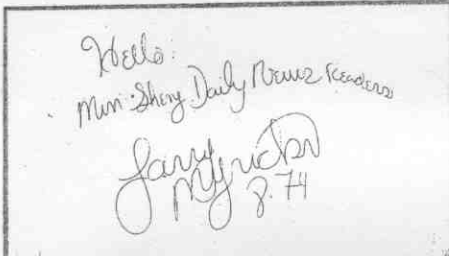 Hello:
Min Sheng Daily News Readers
Larry
8.74